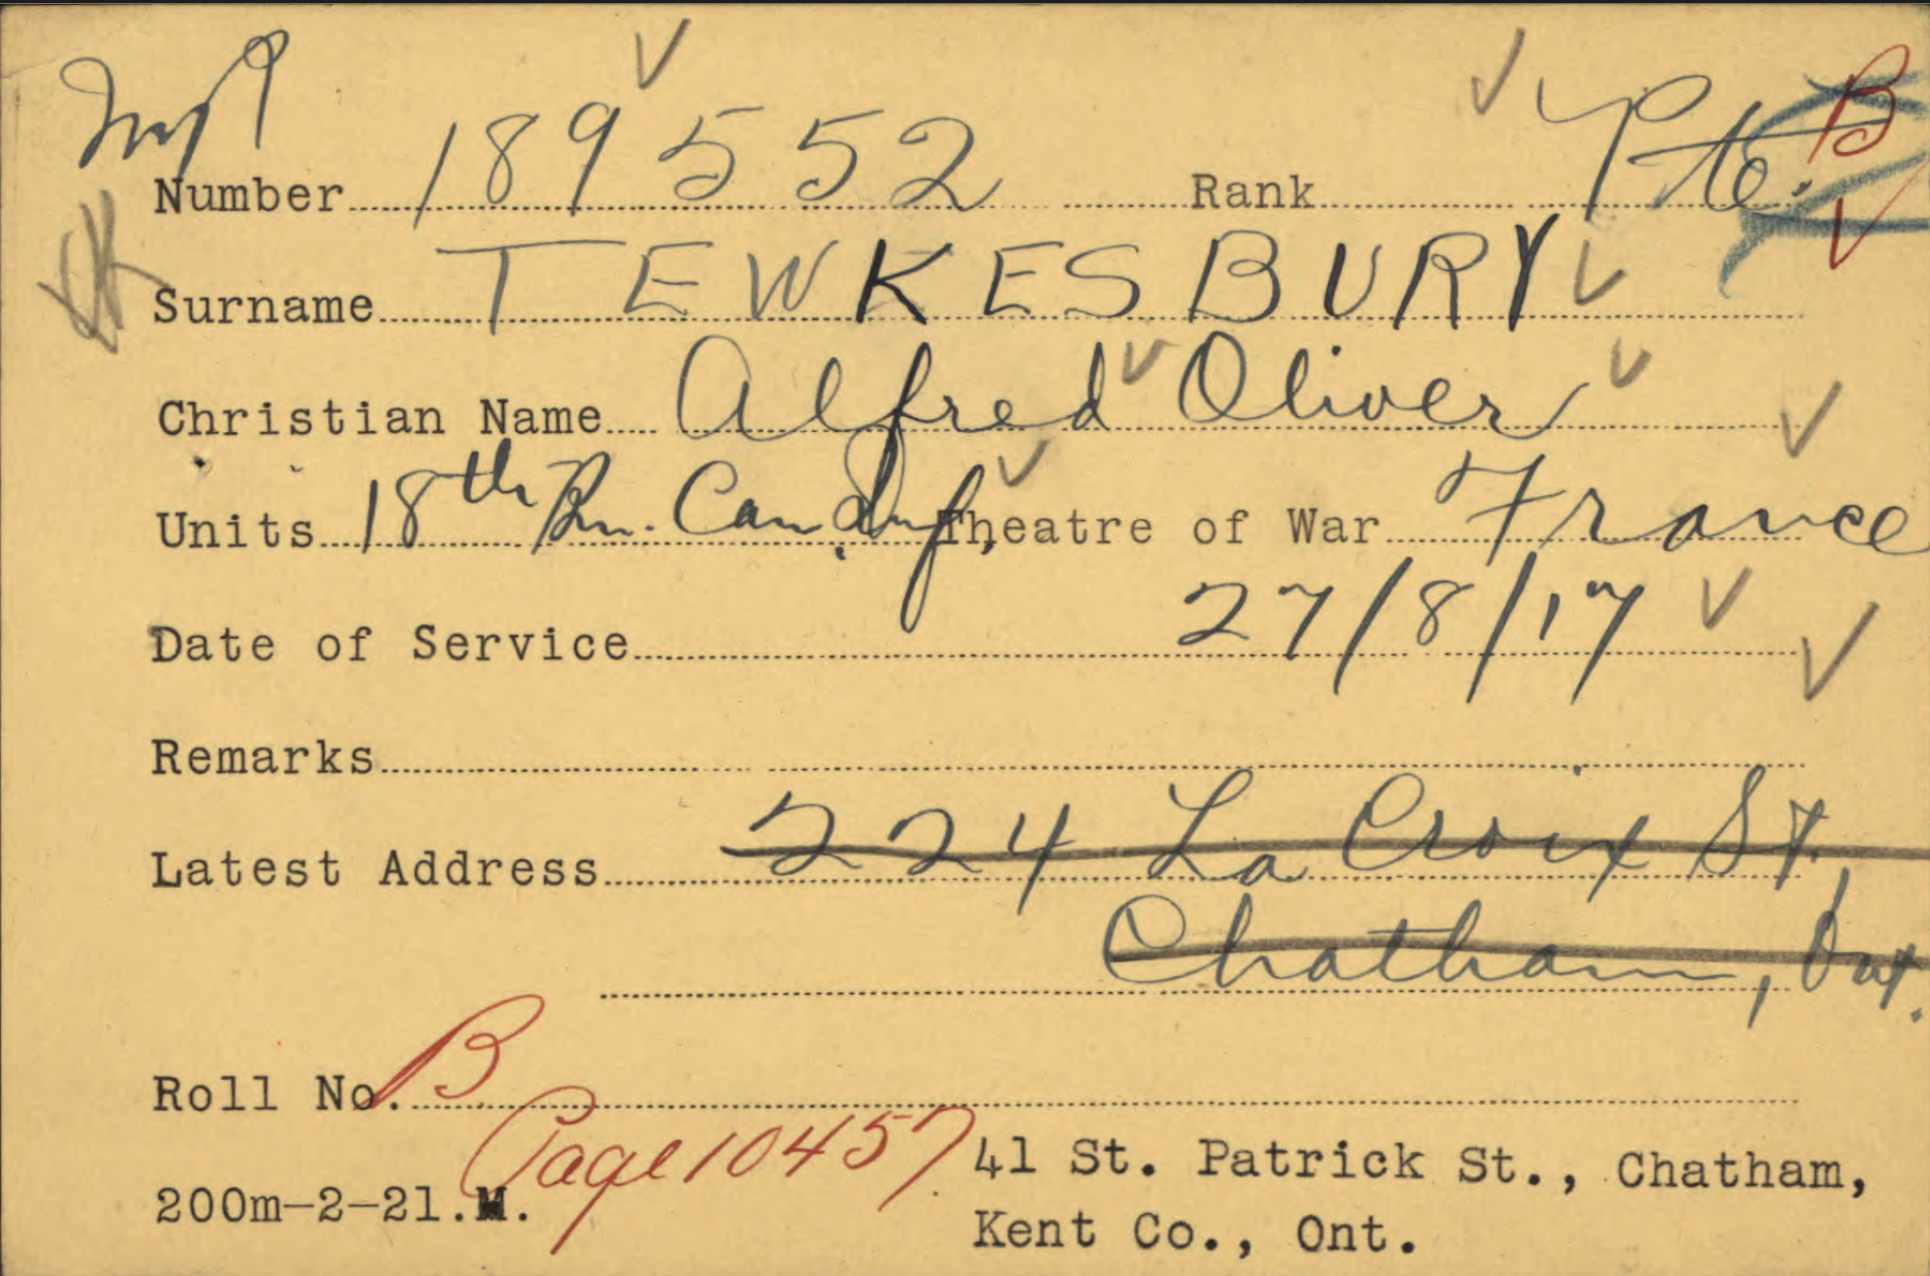 Number 189552 Rank Pte. B
Surname TEWKESBURY
Christian Name Alfred Oliver
Units 18th Bn. Can. Inf. Theatre of War France
Date of Service 27/8/17
Remarks
Latest Address 224 La Croix St.,
Chatham, Ont.
Roll No. B
Page 10457
200m-2-21.M. 41 St. Patrick St., Chatham,
Kent Co., Ont.